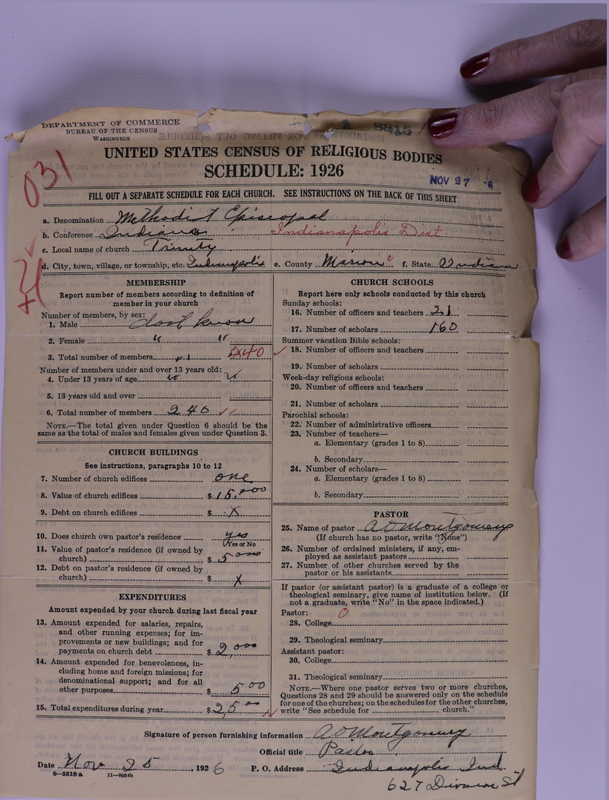 DEPARTMENT OF COMMERCE
BUREAU OF THE CENSUS
WASHINGTON
031
UNITED STATES CENSUS OF RELIGIOUS BODIES
SCHEDULE: 1926
NOV 27
FILL OUT A SEPARATE SCHEDULE FOR EACH CHURCH. SEE INSTRUCTIONS ON THE BACK OF THIS SHEET
a. Denomination Methodist Episcopal
b. Conference Indiana Indianapolis Dist
c. Local name of church Trinity
d. City, town, village, or township, etc. Indianapolis e. County Marion f. State Indiana
MEMBERSHIP
Report number of members according to definition of
member in your church
Number of members, by sex:
1. Male dont know
2. Female " "
3. Total number of members 240
Number of members under and over 13 years old:
4. Under 13 years of age
5. 13 years old and over
6. Total number of members 240
NOTE.—The total given under Question 6 should be the
same as the total of males and females given under Question 3.
CHURCH BUILDINGS
See instructions, paragraphs 10 to 12
7. Number of church edifices one
8. Value of church edifices $ 15,000
9. Debt on church edifices $ x
10. Does church own pastor's residence yes
Yes or No
11. Value of pastor's residence (if owned by
church) $ 5000
12. Debt on pastor's residence (if owned by
church) $ x
EXPENDITURES
Amount expended by your church during last fiscal year
13. Amount expended for salaries, repairs,
and other running expenses; for im-
provements or new buildings; and for
payments on church debt $ 2,000
14. Amount expended for benevolences, in-
cluding home and foreign missions; for
denominational support; and for all
other purposes $ 500
15. Total expenditures during year $ 2500
CHURCH SCHOOLS
Report here only schools conducted by this church
Sunday schools:
16. Number of officers and teachers 21
17. Number of scholars 160
Summer vacation Bible schools:
18. Number of officers and teachers
19. Number of scholars
Week-day religious schools:
20. Number of officers and teachers
21. Number of scholars
Parochial schools:
22. Number of administrative officers
23. Number of teachers—
a. Elementary (grades 1 to 8)
b. Secondary
24. Number of scholars—
a. Elementary (grades 1 to 8)
b. Secondary
PASTOR
25. Name of pastor A O Montgomery
(If church has no pastor, write "None")
26. Number of ordained ministers, if any, em-
ployed as assistant pastors
27. Number of other churches served by the
pastor or his assistants
If pastor (or assistant pastor) is a graduate of a college or
theological seminary, give name of institution below. (If
not a graduate, write "No" in the space indicated.)
Pastor: 0
28. College
29. Theological seminary
Assistant pastor:
30. College
31. Theological seminary
NOTE.—Where one pastor serves two or more churches,
Questions 28 and 29 should be answered only on the schedule
for one of the churches; on the schedules for the other churches,
write "See schedule for church."
Signature of person furnishing information A O Montgomery
Official title Pastor
Date Nov 25, 1926 P. O. Address Indianapolis Ind
8—5518a 627 Division St